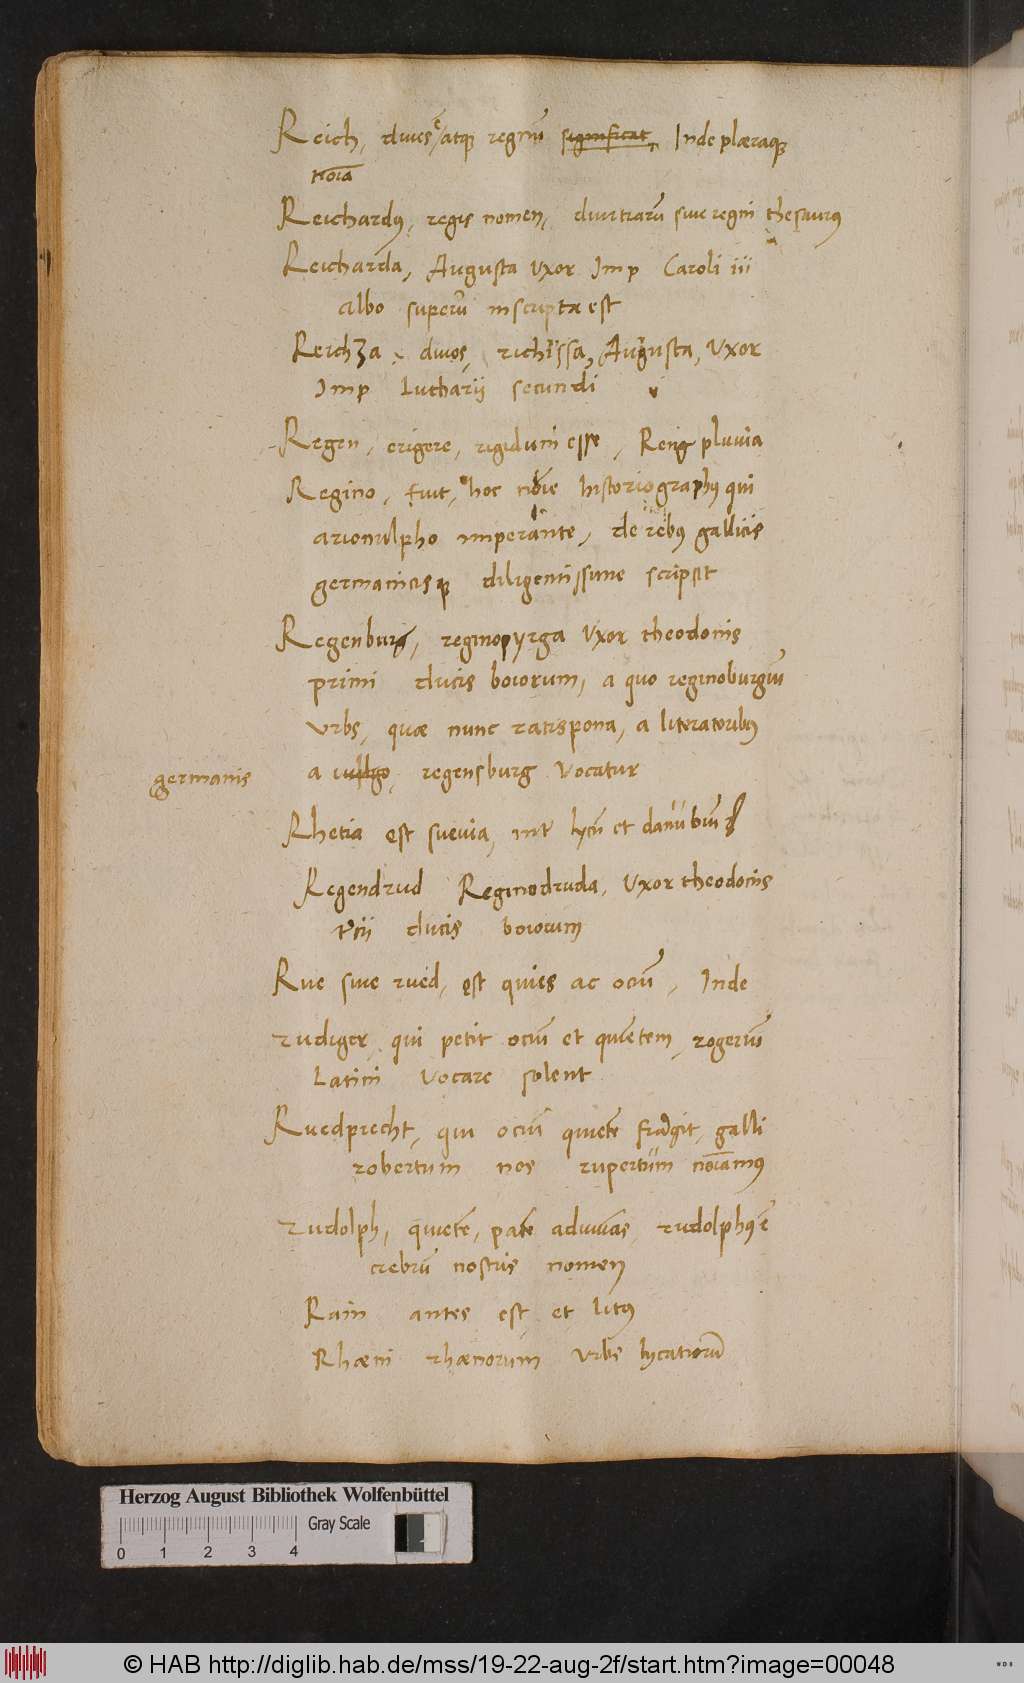 Reich, diues ē/ atq; regnū significat, Inde plæraq;
noīa
Reichardꝰ, regis nomen, diuitiarū siue regni thesaurꝰ
Reicharda, Augusta Vxor Imp Caroli iii
albo superū inscripta est
Reichza, diuos, richissa, Augusta, Vxor
Imp Lutharii secundi
Regen, erigere, rigidum esse, Reng pluuia
Regino, fuit, hoc noīe historiographꝰ qui
arionulpho imperante, de rebꝰ gallicis
germanicisq; diligentissime scripsit
Regenburg, reginopyrga Vxor theodonis
primi ducis boiorum, a quo reginoburgiū
Vrbs, quæ nunc ratispona, a literatoribꝰ
germanis
a uullgo, regensburg Vocatur
Rhetia ęst sueuia, inter lycū et danubiū
Regendrud Reginodruda, Vxor theodonis
tꝰcii ducis boiorum
Rue siue rued, ęst quies ac ociū, Inde
rudiger, qui petit ociū et quietem, rogeriū
Latini Vocare solent
Ruedprecht, qui ociū quietē frangit, galli
robertum nos rupertum noīamꝰ
rudolph, quietē, patē adiuuās, rudolphꝰ ē
crebrū nostris nomen
Rain antes est et litꝰ
Rhæni rhænorum Vrbs lycatiorū
Herzog August Bibliothek Wolfenbüttel
Gray Scale
0 1 2 3 4
© HAB http://diglib.hab.de/mss/19-22-aug-2f/start.htm?image=00048